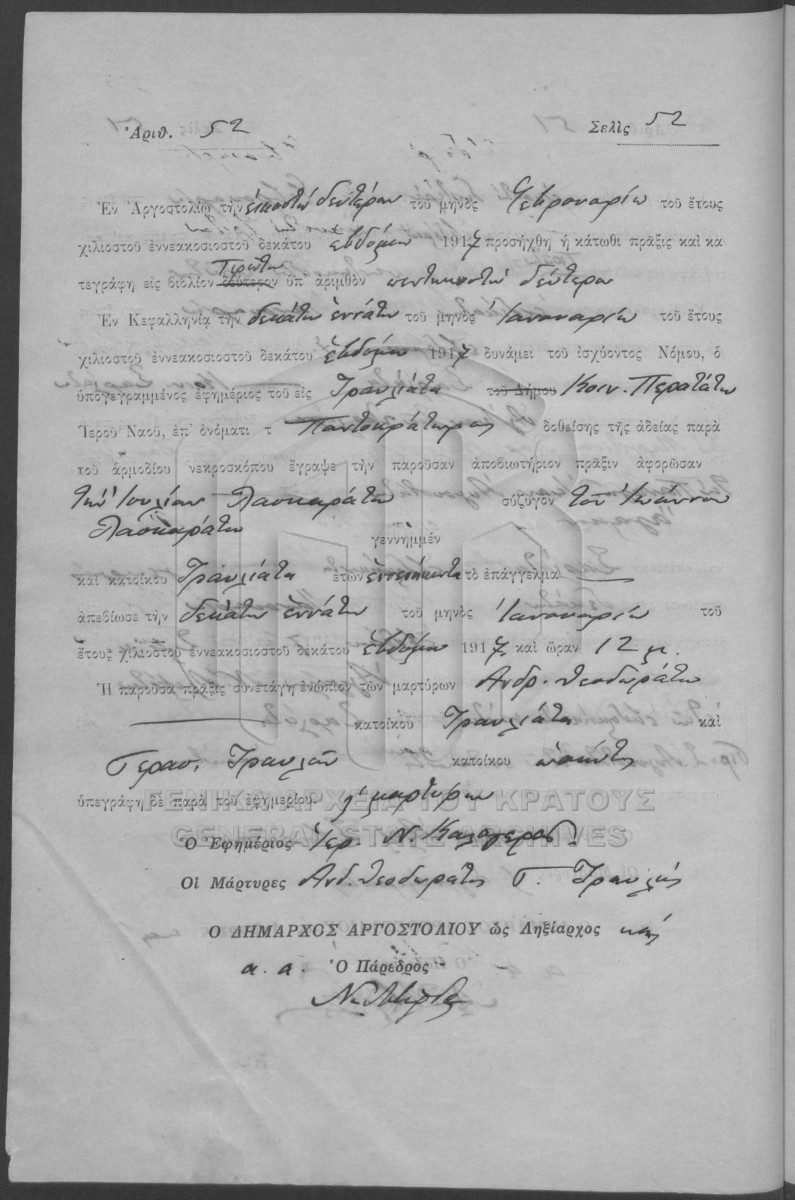 Ἀριθ. 52 Σελὶς 52
Ἐν Ἀργοστολίῳ τὴν εἰκοστὴν δευτέραν τοῦ μηνὸς Φεβρουαρίου τοῦ ἔτους
χιλιοστοῦ ἐννεακοσιοστοῦ δεκάτου ἑβδόμου 1917 προσήχθη ἡ κάτωθι πρᾶξις καὶ κα
Πρῶτον
τεγράφη εἰς βιβλίον δεύτερον ὑπ' ἀριθμὸν πεντηκοστὸν δεύτερον
Ἐν Κεφαλληνίᾳ τὴν δεκάτην ἐννάτην τοῦ μηνὸς Ἰανουαρίου τοῦ ἔτους
χιλιοστοῦ ἐννεακοσιοστοῦ δεκάτου ἑβδόμου 1917 δυνάμει τοῦ ἰσχύοντος Νόμου, ὁ
ὑπογεγραμμένος ἐφημέριος τοῦ εἰς Τραυλιάτα τοῦ Δήμου Κοιν. Περατάτων
Ἱεροῦ Ναοῦ, ἐπ' ὀνόματι τ Παντοκράτωρος δοθείσης τῆς ἀδείας παρὰ
τοῦ ἁρμοδίου νεκροσκόπου ἔγραψε τὴν παροῦσαν ἀποβιωτήριον πρᾶξιν ἀφορῶσαν
τὴν Ἰουλίαν Λασκαράτου σύζυγον τοῦ Ἰωάννου
Λασκαράτου γεννημμέν
καὶ κατοίκου Τραυλιάτα ἐτῶν ἐνενήκοντα τὸ ἐπάγγελμα —
ἀπεβίωσε τὴν δεκάτην ἐννάτην τοῦ μηνὸς Ἰανουαρίου τοῦ
ἔτους χιλιοστοῦ ἐννεακοσιοστοῦ δεκάτου ἑβδόμου 1917 καὶ ὥραν 12 μ.
Ἡ παροῦσα πρᾶξις συνετάγη ἐνώπιον τῶν μαρτύρων Ἀνδρ. Θεοδωράτου
— κατοίκου Τραυλιάτα καὶ
Γερασ. Τραυλοῦ κατοίκου
ὑπεγράφη δὲ παρὰ τοῦ ἐφημερίου. μαρτύρων
ΓΕΝΙΚΑ ΑΡΧΕΙΑ ΤΟΥ ΚΡΑΤΟΥΣ
GENERAL STATE ARCHIVES
Ὁ Ἐφημέριος Ἱερ. Ν. Καλογερᾶς
Οἱ Μάρτυρες Ἀνδ. Θεοδωράτος Γ. Τραυλός
Ο ΔΗΜΑΡΧΟΣ ΑΡΓΟΣΤΟΛΙΟΥ ὡς Ληξίαρχος
α. α. Ὁ Πάρεδρος